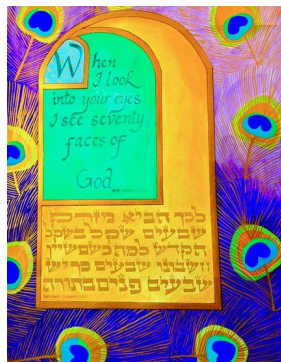 When
I look
into your eyes
I see seventy
faces of
God
לכך הביא מזרק
שבעים שקל בשקל
הקדש למה כשם שיין
חשבונו שבעים כך יש
שבעים פנים בתורה